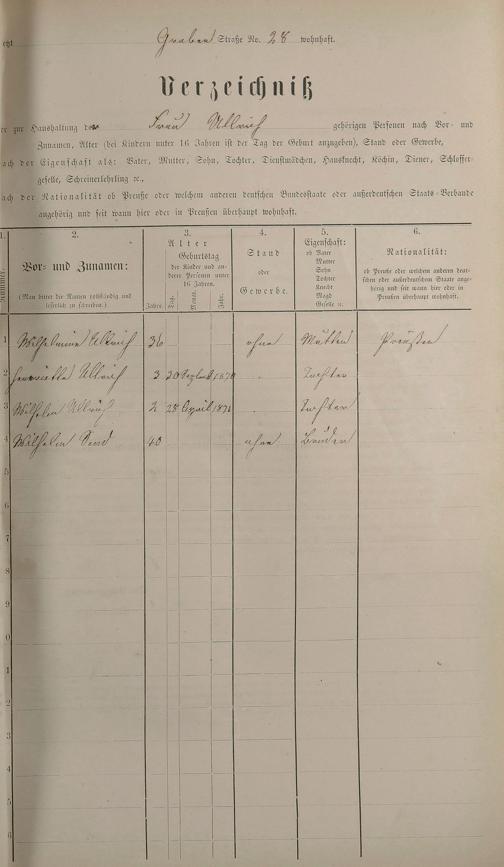 Graben Straße No. 28 wohnhaft.
Verzeichniß
zur Haushaltung der Frau Ullrich gehörigen Personen nach Vor- und
Zunamen, Alter (bei Kindern unter 16 Jahren ist der Tag der Geburt anzugeben), Stand oder Gewerbe,
nach der Eigenschaft als: Vater, Mutter, Sohn, Tochter, Dienstmädchen, Hausknecht, Köchin, Diener, Schlosser-
geselle, Schreinerlehrling ꝛc.,
nach der Nationalität ob Preuße oder welchem anderen deutschen Bundesstaate oder außerdeutschen Staats-Verbande
angehörig und seit wann hier oder in Preußen überhaupt wohnhaft.
1. 2. 3. 4. 5. 6.
Nummer. Vor- und Zunamen:
(Man bittet die Namen vollständig und
leserlich zu schreiben.)
Alter
Geburtstag
der Kinder und an-
deren Personen unter
16 Jahren.
Jahre. Tag. Monat. Jahr.
Stand
oder
Gewerbe.
Eigenschaft:
ob Vater
Mutter
Sohn
Tochter
Knecht
Magd
Geselle ꝛc.
Nationalität:
ob Preuße oder welchem anderen deut-
schen oder außerdeutschen Staate ange-
hörig und seit wann hier oder in
Preußen überhaupt wohnhaft.
1 Wilhelmine Ullrich 36 ohne Mutter Preußen
2 Henriette Ullrich 3 30 Septemb 1870 Tochter
3 Wilhelm Ullrich 2 28 April 1871 Tochter
4 Wilhelm 40 ohne Bruder
5
6
7
8
9
0
1
2
3
4
5
6